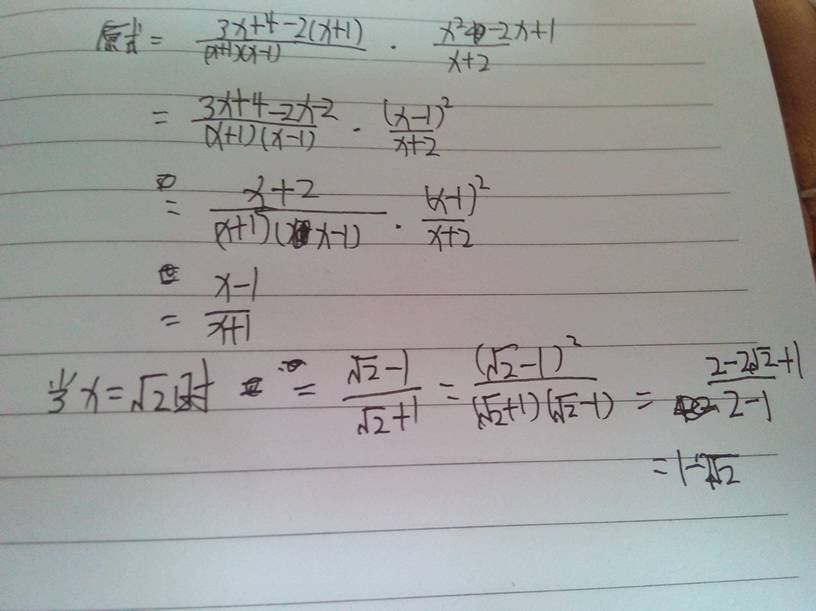 原式 = (3x+4-2(x+1))/((x+1)(x-1)) · (x²-2x+1)/(x+2)
= (3x+4-2x-2)/((x+1)(x-1)) · (x-1)²/(x+2)
= (x+2)/((x+1)(x-1)) · (x-1)²/(x+2)
= (x-1)/(x+1)
当x=√2时 = (√2-1)/(√2+1) = (√2-1)²/((√2+1)(√2-1)) = (2-2√2+1)/(2-1)